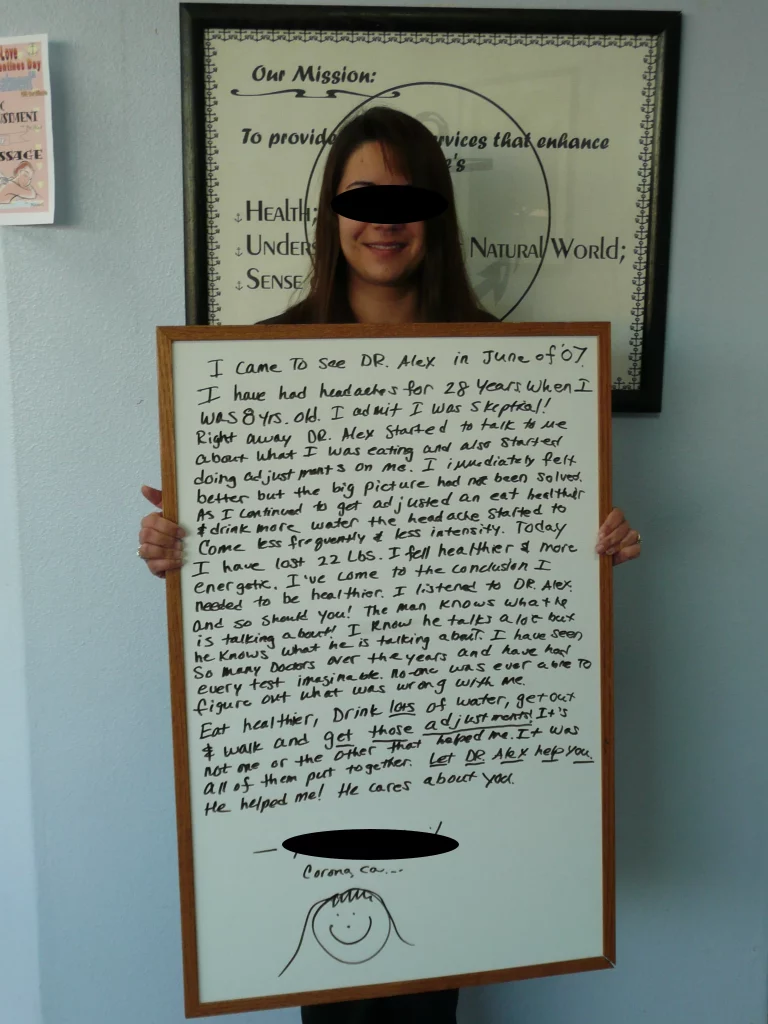 Love
ntines Day
USTMENT
SSAGE
Our Mission:
To provide rvices that enhance
e's
Health;
Unders Natural World;
Sense
I came To See DR. Alex in June of '07.
I have had headaches for 28 years when I
was 8 yrs. old. I admit I was skeptical!
Right away DR. Alex started to talk to me
about what I was eating and also started
doing adjustments on me. I immediately felt
better but the big picture had not been solved.
As I continued to get adjusted an eat healthier
& drink more water the headache started to
Come less frequently & less intensity. Today
I have lost 22 Lbs. I fell healthier & more
energetic. I've come to the conclusion I
needed to be healthier. I listened to DR. Alex
and so should you! The man knows what he
is talking about! I know he talks a lot but
he knows what he is talking about. I have seen
So many Doctors over the years and have had
every test imaginable. no-one was ever able to
figure out what was wrong with me.
Eat healthier, Drink lots of water, get out
& walk and get those adjustments! It's
not one or the other that helped me. It was
all of them put together. Let DR. Alex help you.
He helped me! He cares about you.
Corona, ca...